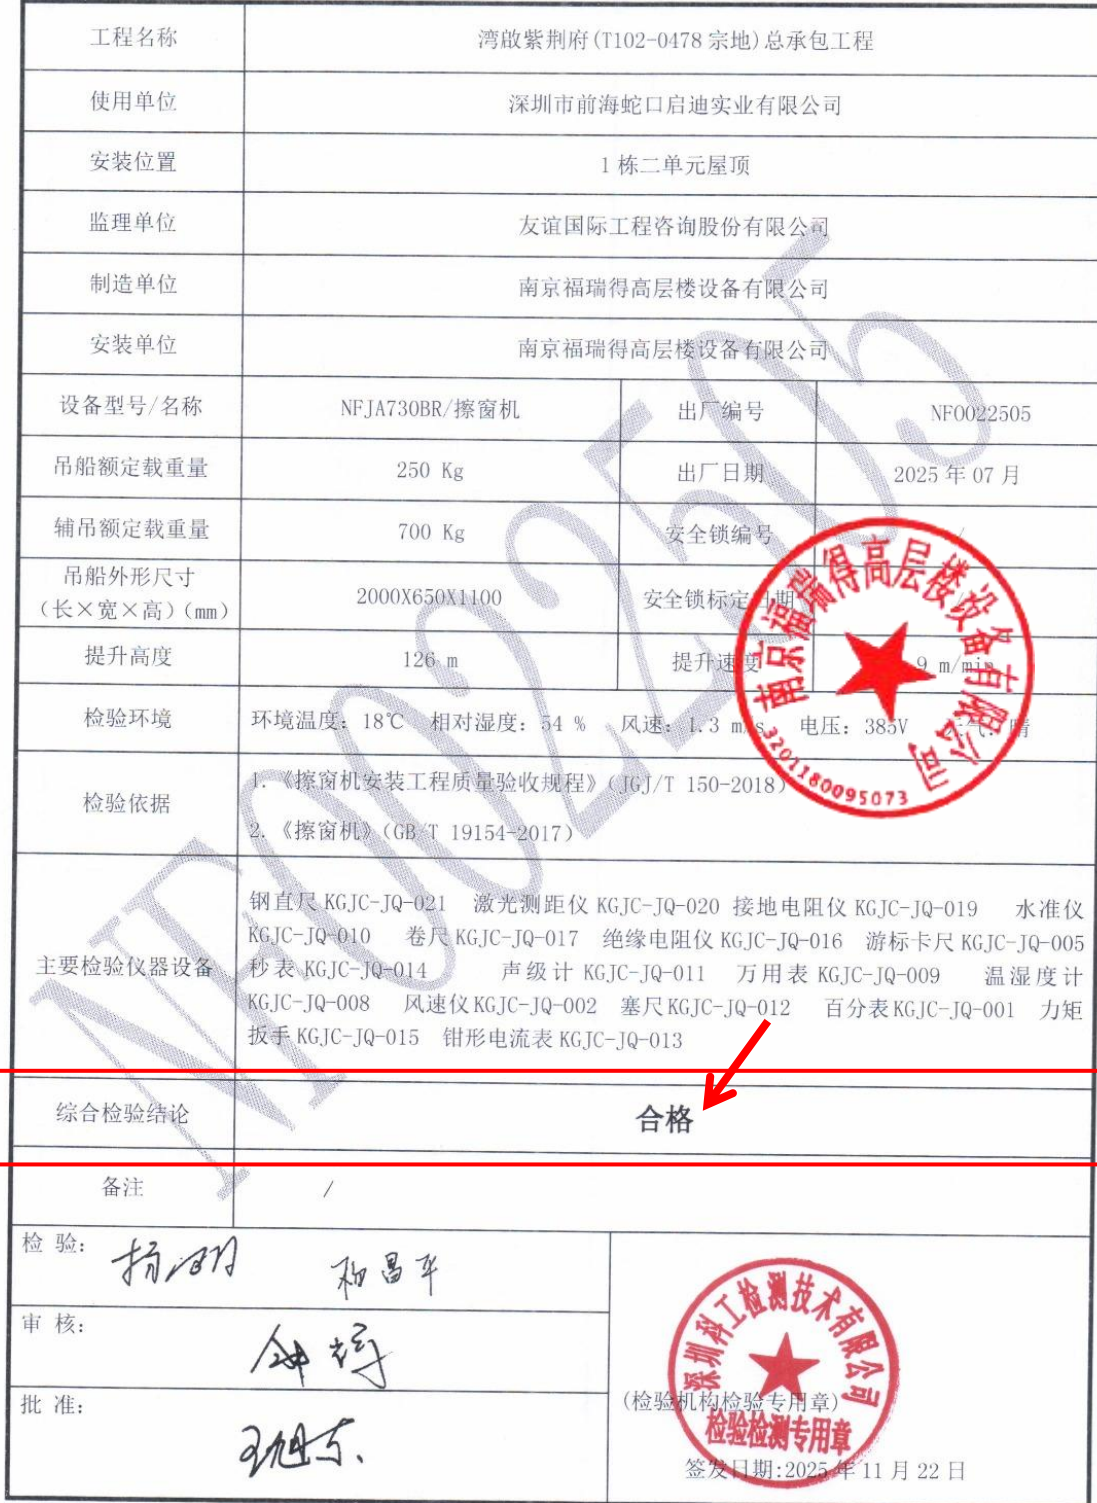 工程名称 湾啟紫荆府(T102-0478 宗地)总承包工程
使用单位 深圳市前海蛇口启迪实业有限公司
安装位置 1 栋二单元屋顶
监理单位 友谊国际工程咨询股份有限公司
制造单位 南京福瑞得高层楼设备有限公司
安装单位 南京福瑞得高层楼设备有限公司
设备型号/名称 NFJA730BR/擦窗机 出厂编号 NF0022505
吊船额定载重量 250 Kg 出厂日期 2025 年 07 月
辅吊额定载重量 700 Kg 安全锁编号 /
吊船外形尺寸
(长×宽×高)(mm) 2000X650X1100 安全锁标定日期
提升高度 126 m 提升速度 9 m/min
检验环境 环境温度：18℃ 相对湿度：54 % 风速：1.3 m/s 电压：385V 天气：晴
检验依据
1.《擦窗机安装工程质量验收规程》(JGJ/T 150-2018)
2.《擦窗机》(GB/T 19154-2017)
主要检验仪器设备
钢直尺 KGJC-JQ-021 激光测距仪 KGJC-JQ-020 接地电阻仪 KGJC-JQ-019 水准仪
KGJC-JQ-010 卷尺 KGJC-JQ-017 绝缘电阻仪 KGJC-JQ-016 游标卡尺 KGJC-JQ-005
秒表 KGJC-JQ-014 声级计 KGJC-JQ-011 万用表 KGJC-JQ-009 温湿度计
KGJC-JQ-008 风速仪 KGJC-JQ-002 塞尺 KGJC-JQ-012 百分表 KGJC-JQ-001 力矩
扳手 KGJC-JQ-015 钳形电流表 KGJC-JQ-013
综合检验结论 合格
备注 /
检 验: 杨昌平
审 核:
批 准: 王旭东
(检验机构检验专用章)
签发日期:2025 年 11 月 22 日
南京福瑞得高层楼设备有限公司
3201180095073
深圳科工检测技术有限公司
检验检测专用章
NF0022505